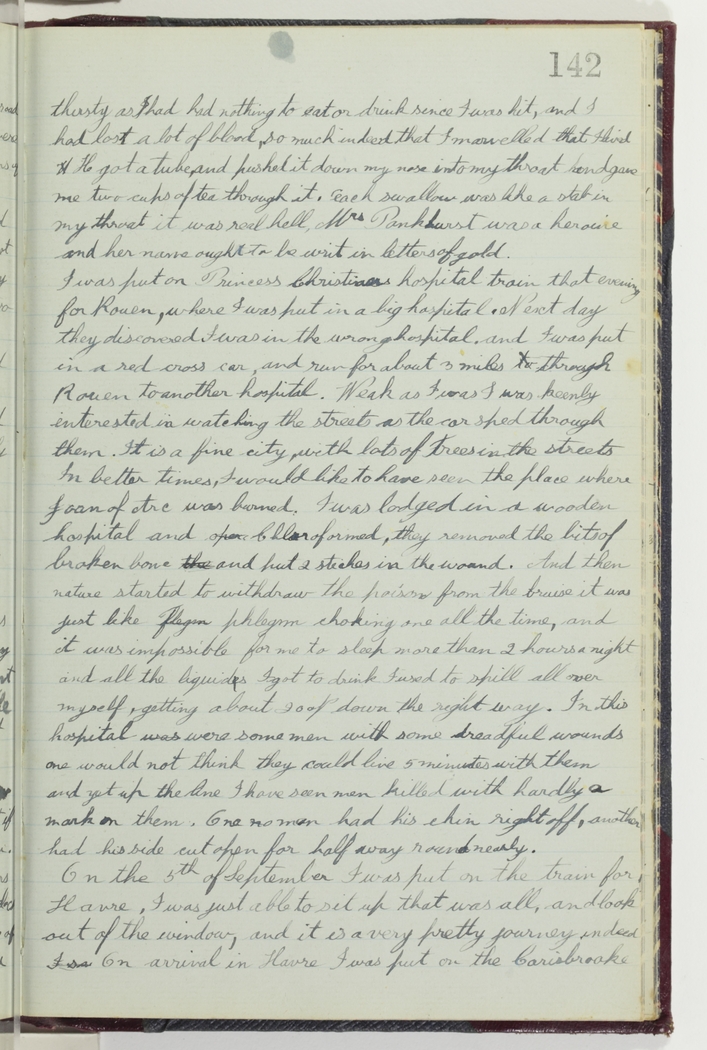 142
thirsty as I had had nothing to eat or drink since I was hit, and I
had lost a lot of blood, so much indeed that I marvelled that I lived
He got a tube, and pushed it down my nose into my throat and gave
me two cups of tea through it. Each swallow was like a stab in
my throat it was real hell, Mrs Pankhurst was a heroine
and her name ought to be writ in letters of gold.
I was put on Princess Christians hospital train that evening
for Rouen, where I was put in a big hospital. Next day
they discovered I was in the wrong hospital. and I was put
in a red cross car, and run for about 3 miles to through
Rouen to another hospital. Weak as I was I was keenly
interested in watching the streets as the car sped through
them. It is a fine city, with lots of trees in the streets
In better times, I would like to have seen the place where
Joan of Arc was burned. I was lodged in a wooden
hospital and oper Chloroformed, they removed the bits of
broken bone the and put 2 stiches in the wound. And then
nature started to withdraw the poison from the bruise it was
just like flegm phlegm choking one all the time, and
it was impossible for me to sleep more than 2 hours a night
and all the liquids I got to drink I used to spill all over
myself, getting about down the right way. In this
hospital was were some men with some dreadful wounds
one would not think they could live 5 minutes with them
and yet up the line I have seen men killed with hardly a
mark on them. One man had his chin right off, another
had his side cut open for half way round nearly.
On the 5th of September I was put on the train for
Havre, I was just able to sit up that was all, and look
out of the window, and it is a very pretty journey indeed
On arrival in Havre I was put on the Carisbrooke